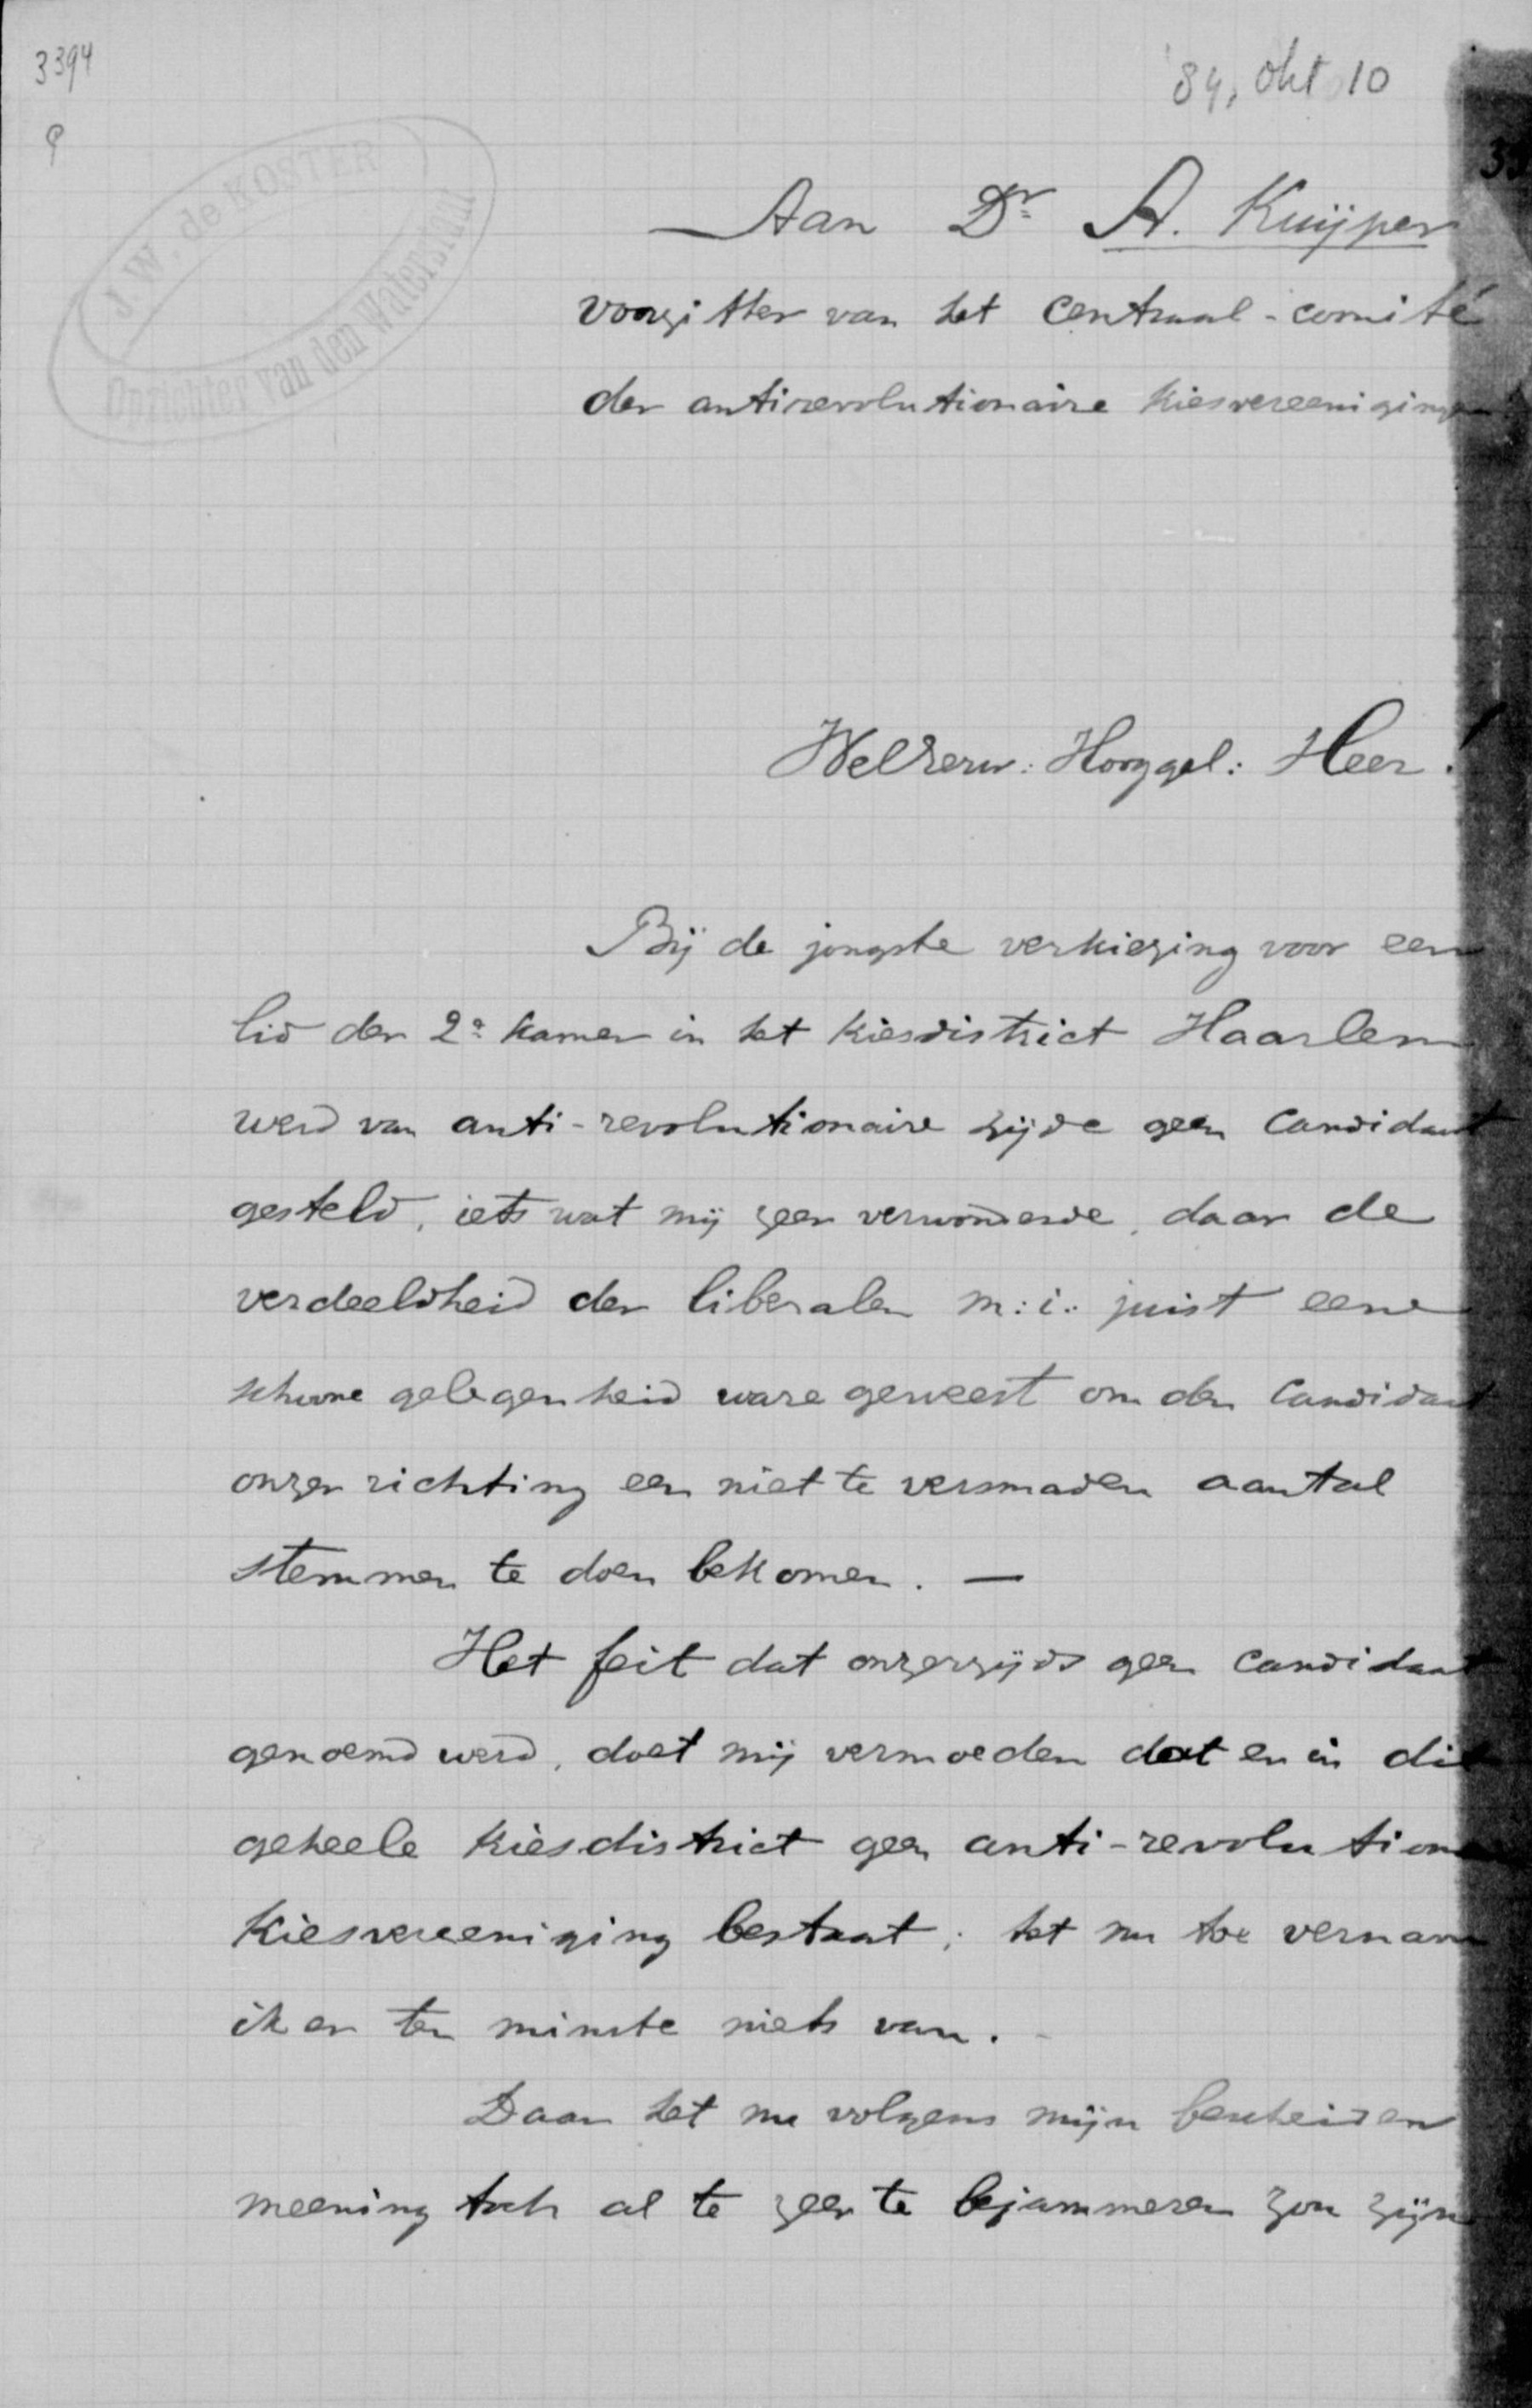 3394
'84, okt 10
J. W. de KOSTER
Opzichter van den Waterstaat
Aan Dr A. Kuijper
voorzitter van het Centraal-comité
der antirevolutionaire Kiesvereeniging
WelEerw: Hooggel: Heer!
Bij de jongste verkiezing voor een
lid der 2e kamer in het kiesdistrict Haarlem
werd van anti-revolutionaire zijde geen Candidaat
gesteld, iets wat mij zeer verwonderde, daar de
verdeeldheid der liberalen m:i: juist eene
schoone gelegenheid ware geweest om den Candidaat
onzer richting een niet te versmaden aantal
stemmen te doen bekomen. —
Het feit dat onzerzijds geen candidaat
genoemd werd, doet mij vermoeden dat er in dit
geheele kiesdistrict geen anti-revolution
Kiesvereeniging bestaat; tot nu toe vernam
ik er ten minste niets van.
Daar het nu volgens mijn bescheiden
meening toch al te zeer te bejammeren zou zijn